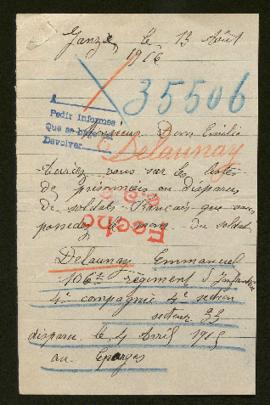 le 13 Août
1916
35506
Pedir informes
Que se
Devolver
Monsieur Don Emilio
Delaunay
vous sur les listes
de prisonniers ou disparus
de soldats Français que vous
possedez le nom du soldat
Hecho
Delaunay Emmanuel
106e régiment d'Infanterie
4e compagnie 4e section
secteur
disparu le 4 Avril 1915
au Eparges